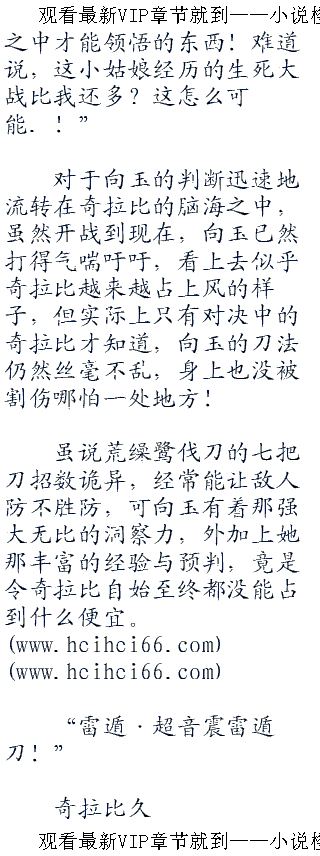 观看最新VIP章节就到——小说检
之中才能领悟的东西！难道
说，这小姑娘经历的生死大
战比我还多？这怎么可
能．！”
对于向玉的判断迅速地
流转在奇拉比的脑海之中，
虽然开战到现在，向玉已然
打得气喘吁吁，看上去似乎
奇拉比越来越占上风的样
子，但实际上只有对决中的
奇拉比才知道，向玉的刀法
仍然丝毫不乱，身上也没被
割伤哪怕一处地方！
虽说荒缲鹭伐刀的七把
刀招数诡异，经常能让敌人
防不胜防，可向玉有着那强
大无比的洞察力，外加上她
那丰富的经验与预判，竟是
令奇拉比自始至终都没能占
到什么便宜。
(www.hcihci66.com)
(www.hcihci66.com)
“雷遁·超音震雷遁
刀！”
奇拉比久
观看最新VIP章节就到——小说检